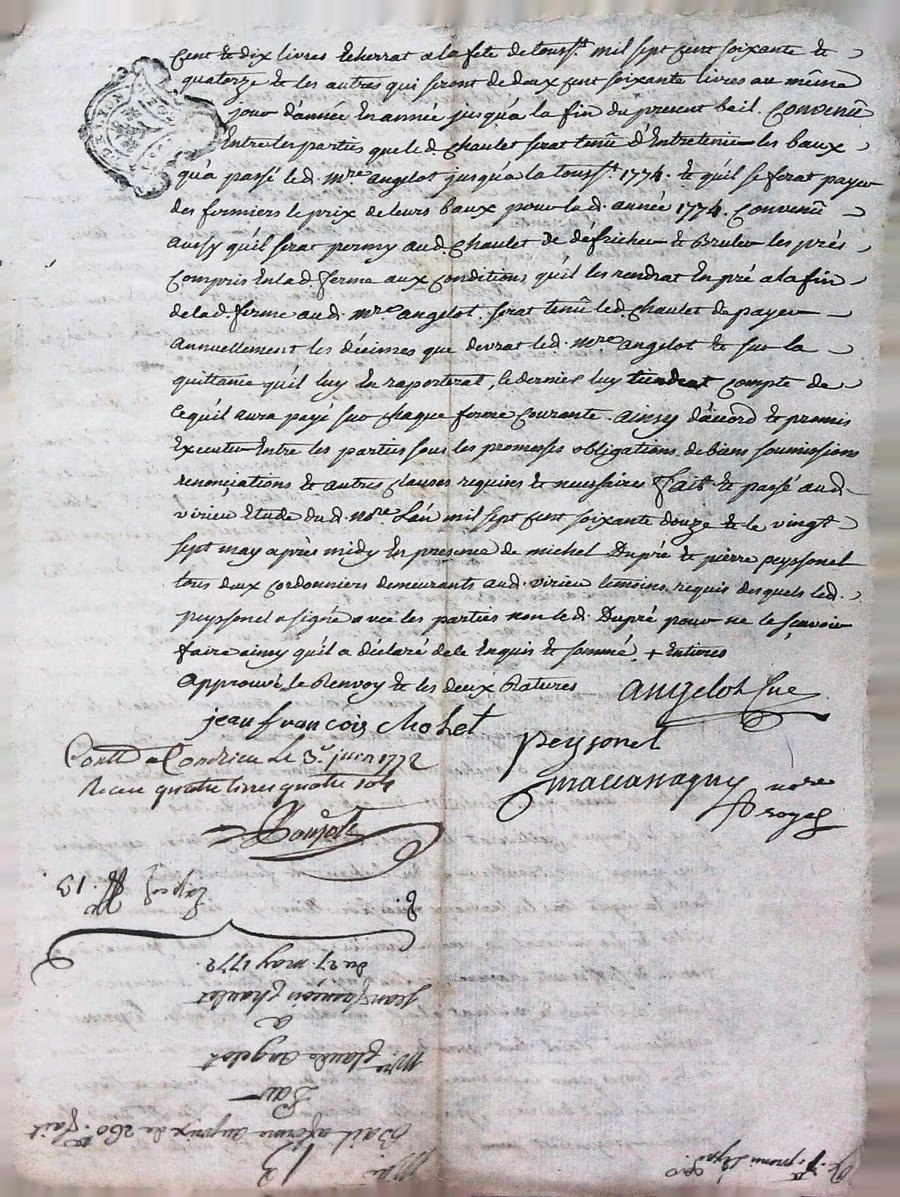 Cent & dix livres Echerrat a la fete de touss.t mil sept cent soixante &
quatorze & les autres qui seront de deux cent soixante livres au même
jour d'année En année jusqu'a la fin du present bail. Convenû
Entre les parties que led. Chaulet serat tenû d'Entretenir les baux
qu'a passé led. mre angelot jusqu'a la touss.t 1774. & qu'il se ferat payer
des fermiers le prix de leurs baux pour lad. année 1774. Convenû
aussy qu'il serat permy aud. Chaulet de défricher & Bruler les prés
Compris En lad. ferme aux Conditions qu'il les rendrat En pré a la fin
de lad. ferme aud. mre angelot. serat tenû led. Chaulet de payer
annuellement les décimes que devrat led. mre angelot & sur la
quittance qu'il luy En raporterat, le dernier luy tiendrat Compte de
ce qu'il aura payé sur chaque ferme courante. ainsy d'acord & promis
Executer Entre les parties sous les promesses obligations de biens soumissions
renonciations & autres clauses requises & necessaires fait & passé aud.
virieu Etude du d. nore. L'an mil sept cent soixante douze & le vingt
sept may après midy En presence de michel Dupré & pierre peyssonel
tous deux cordonniers demeurants aud. virieu temoins requis desquels led.
peyssonel a signé avec les parties non led. Dupré pour ne le sçavoir
faire ainsy qu'il a déclaré de ce Enquis & sommé. +
Approuvé le Renvoy & les deux Ratures
angelot Cue
jean francois Cholet
peysonel
Contllé a Condrieu Le 3e. juin 1772
Receu quatre livres quatre sols
nore
royal
13
du 27. may 1772.
Jean francois Chaulet
a
Mre. Claude Angelot
Par
Bail a ferme au prix de 260tt. fait